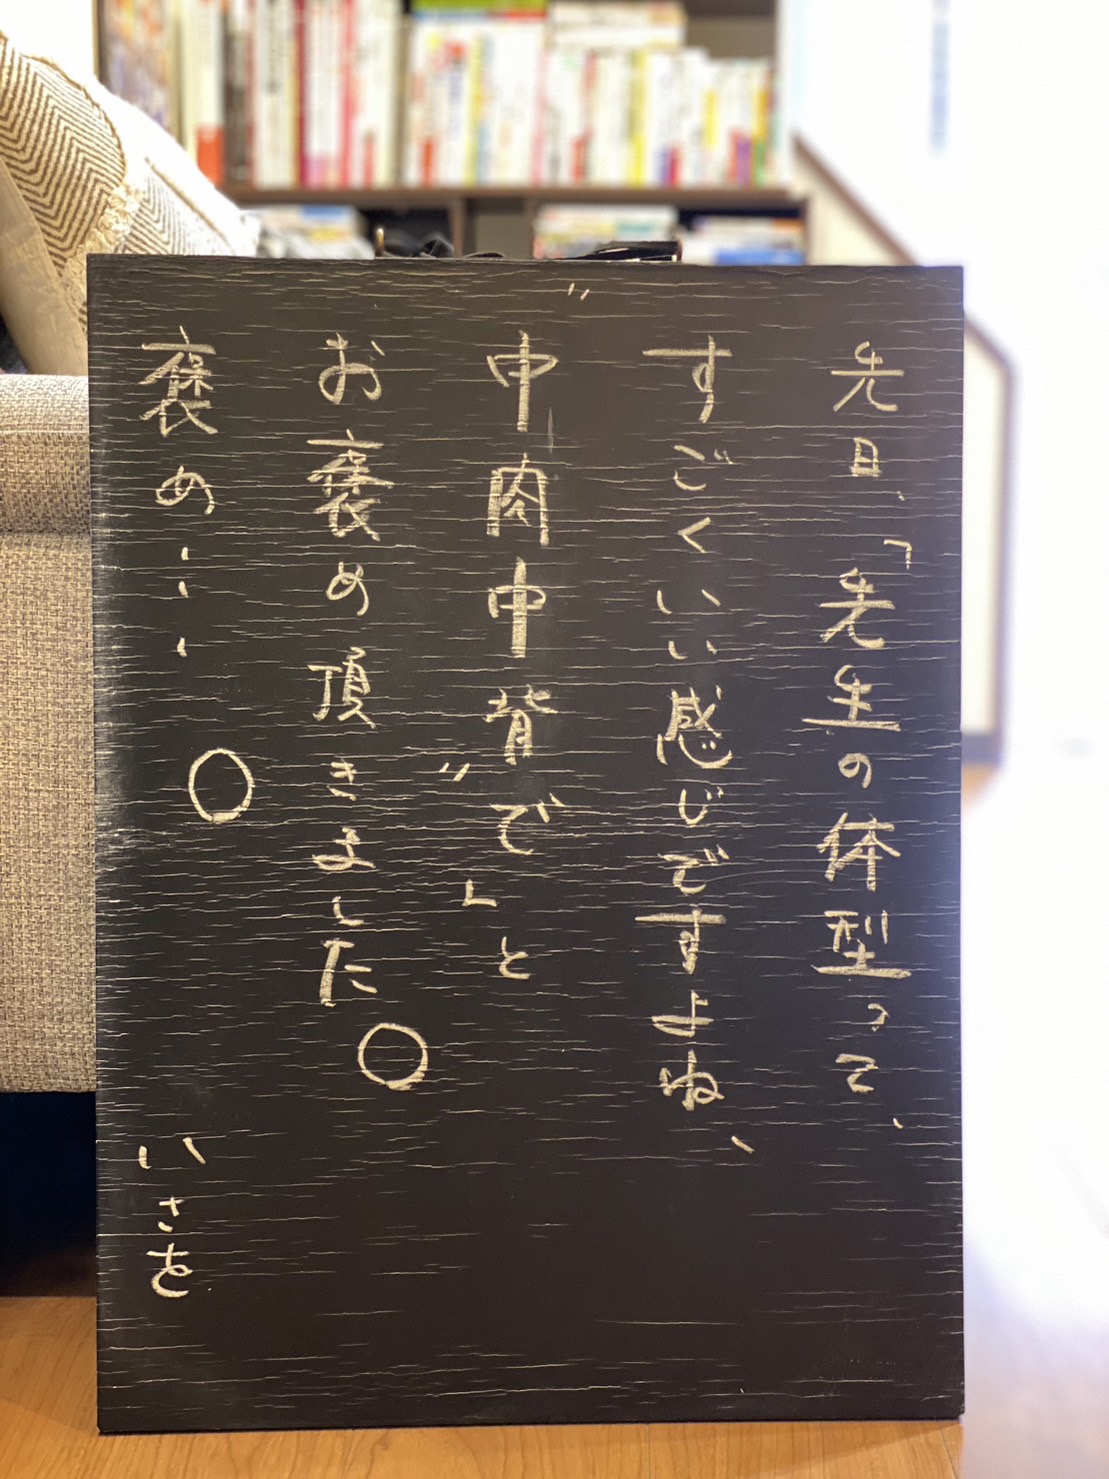 先日、「先生の体型って、
すごくいい感じですよね、
〝中肉中背〟で」と
お褒め頂きました。
褒め・・・。
いさを